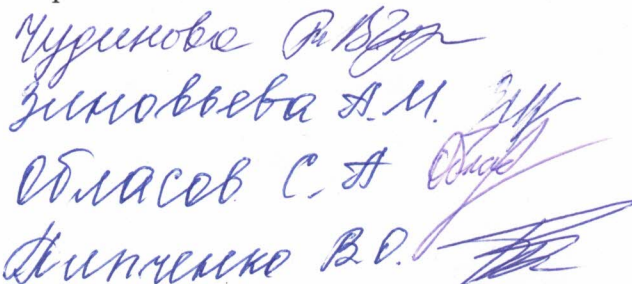 Чудинова
Зиновьева А.М.
Обласов С.А
Пипченко В.О.